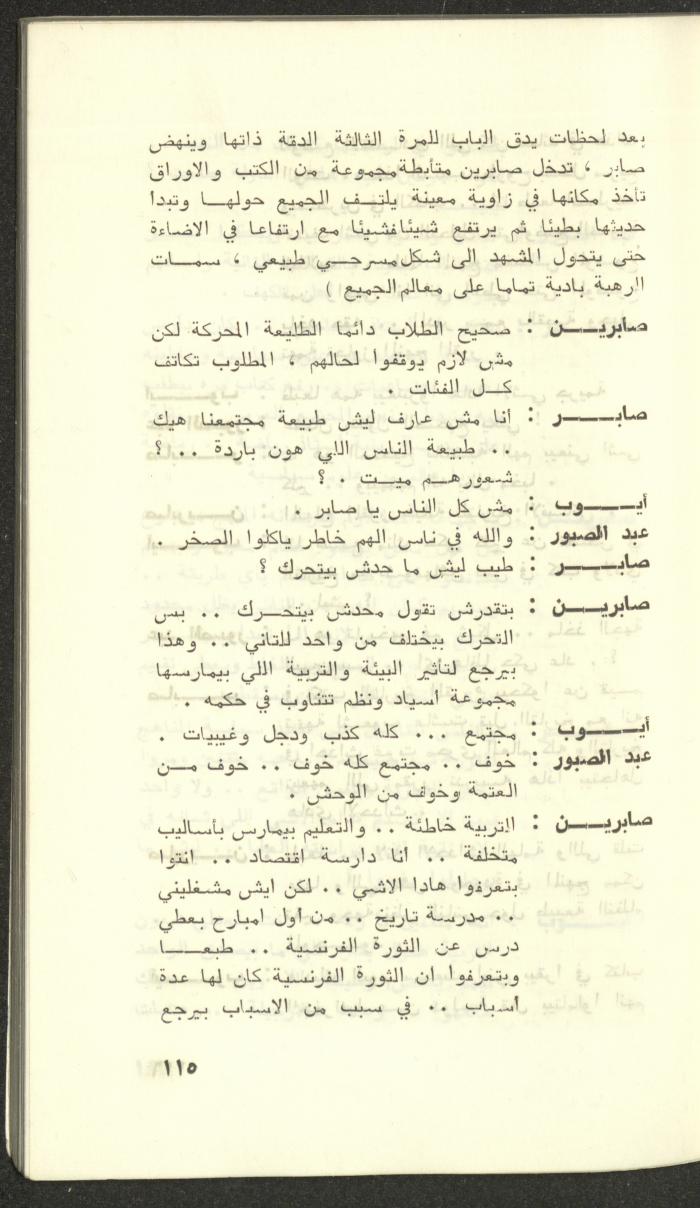 بعد لحظات يدق الباب للمرة الثالثة الدقة ذاتها وينهض
صابر ، تدخل صابرين متأبطة مجموعة من الكتب والاوراق
تأخذ مكانها في زاوية معينة يلتـف الجميع حولهـا وتبدا
حديثها بطيئا ثم يرتفع شيئا فشيئا مع ارتفاعا في الاضاءة
حتى يتحول المشهد الى شكل مسرحـي طبيعي ، سمـات
الرهبة بادية تماما على معالم الجميع )
صابريـــن : صحيح الطلاب دائما الطليعة المحركة لكن
مش لازم يوقفوا لحالهم ، المطلوب تكاتف
كـل الفئات .
صابــــر : أنا مش عارف ليش طبيعة مجتمعنا هيك
.. طبيعة الناس اللي هون باردة .. ؟
شعورهـم ميـت . ؟
أيــــوب : مش كل الناس يا صابر .
عبد الصبور : والله في ناس الهم خاطر ياكلوا الصخر .
صابــــر : طيب ليش ما حدش بيتحرك ؟
صابريـــن : بتقدرش تقول محدش بيتحـرك .. بس
التحرك بيختلف من واحد للتاني .. وهذا
بيرجع لتأثير البيئة والتربية اللي بيمارسها
مجموعة أسياد ونظم تتناوب في حكمه .
أيــــوب : مجتمع ... كله كذب ودجل وغيبيات .
عبد الصبور : خوف .. مجتمع كله خوف .. خوف مـن
العتمة وخوف من الوحش .
صابريـــن : التربية خاطئة .. والتعليم بيمارس بأساليب
متخلفة .. أنا دارسة اقتصاد .. انتوا
بتعرفوا هادا الاشي .. لكن ايش مشغليني
.. مدرسة تاريخ .. من أول امبارح بعطي
درس عن الثورة الفرنسية .. طبعــا
وبتعرفوا ان الثورة الفرنسية كان لها عدة
أسباب .. في سبب من الاسباب بيرجع
١١٥